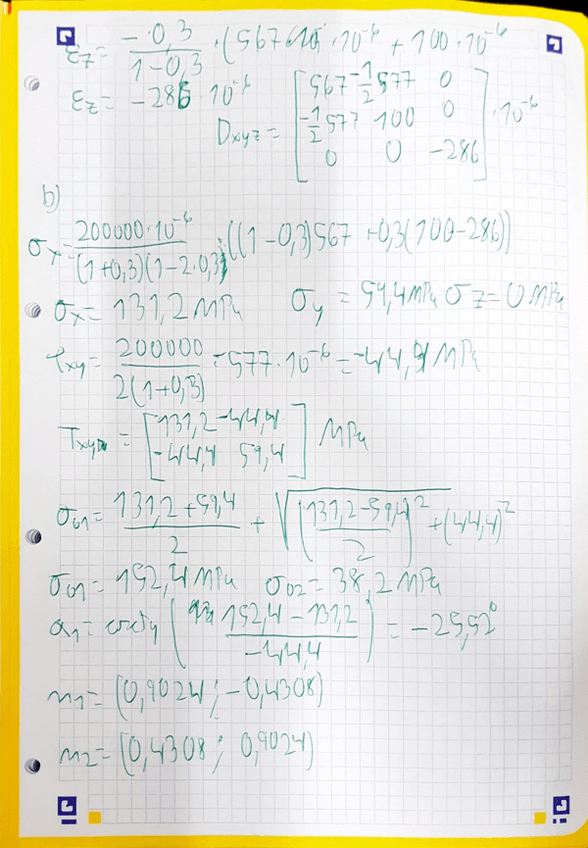 εz = -0,3/(1-0,3) · (567 · 10^-6 + 100 · 10^-6
εz = -286 · 10^-6
Dxyz = [567 -1/2 577 0; -1/2 577 100 0; 0 0 -286] · 10^-6
b)
σx = 200000·10^-6/((1+0,3)(1-2·0,3)) · ((1-0,3)567 +0,3(100-286))
σx = 131,2 MPa σy = 59,4 MPa σz = 0 MPa
τxy = 200000/(2(1+0,3)) · -577 · 10^-6 = -44,4 MPa
Txy = [131,2 -44,4; -44,4 59,4] MPa
σ01 = (131,2+59,4)/2 + √(((131,2-59,4)/2)^2 + (44,4)^2)
σ01 = 152,4 MPa σ02 = 38,2 MPa
α1 = (152,4 - 131,2)/(-44,4) = -25,52°
n1 = (0,9024 ; -0,4308)
n2 = (0,4308 ; 0,9024)